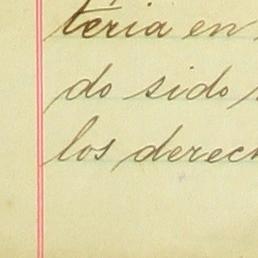 teria en
do sido
los derech